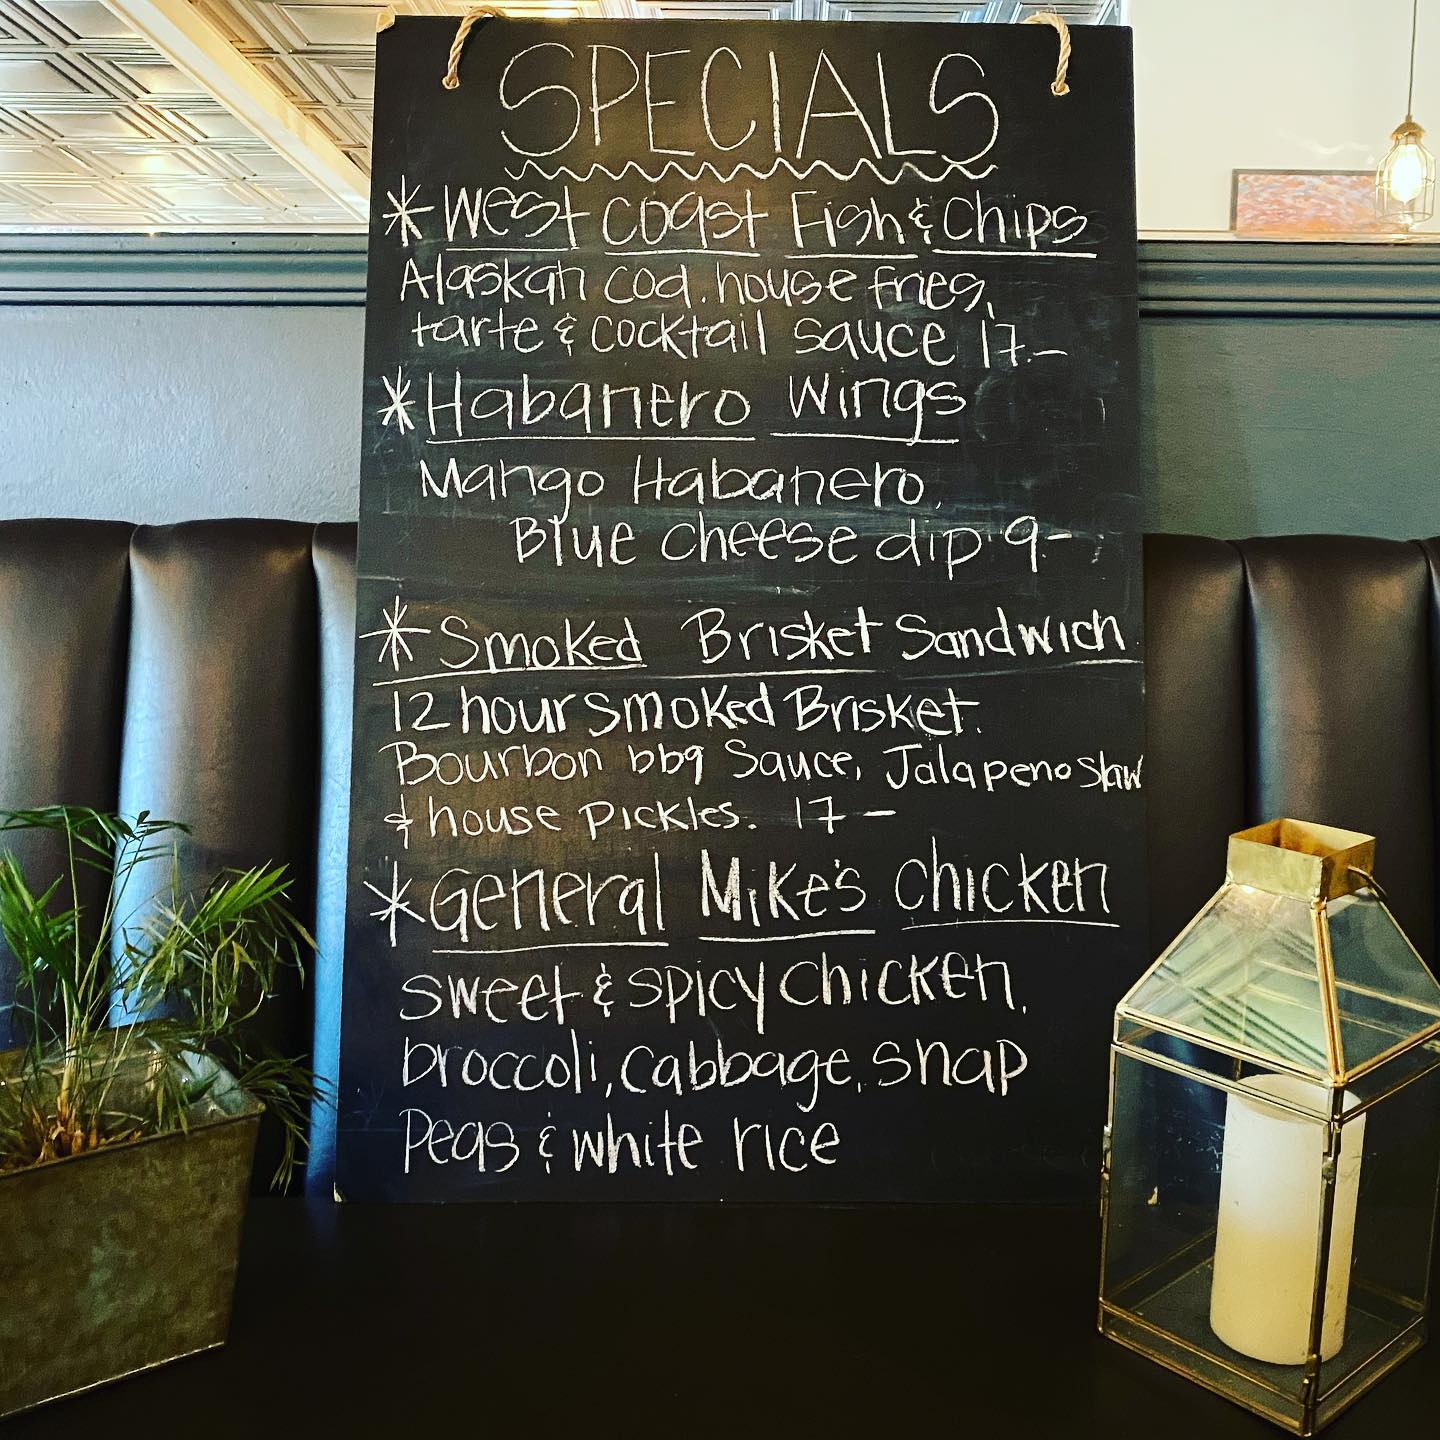 SPECIALS
* West Coast Fish & Chips
Alaskan cod. house fries,
tarte & cocktail sauce 17.-
* Habanero Wings
Mango Habanero,
Blue cheese dip 9-
* Smoked Brisket Sandwich
12 hour smoked Brisket.
Bourbon bbq Sauce, Jalapeno Slaw
& house pickles. 17-
* General Mike's Chicken
sweet & spicy chicken.
broccoli, cabbage, snap
Peas & white rice